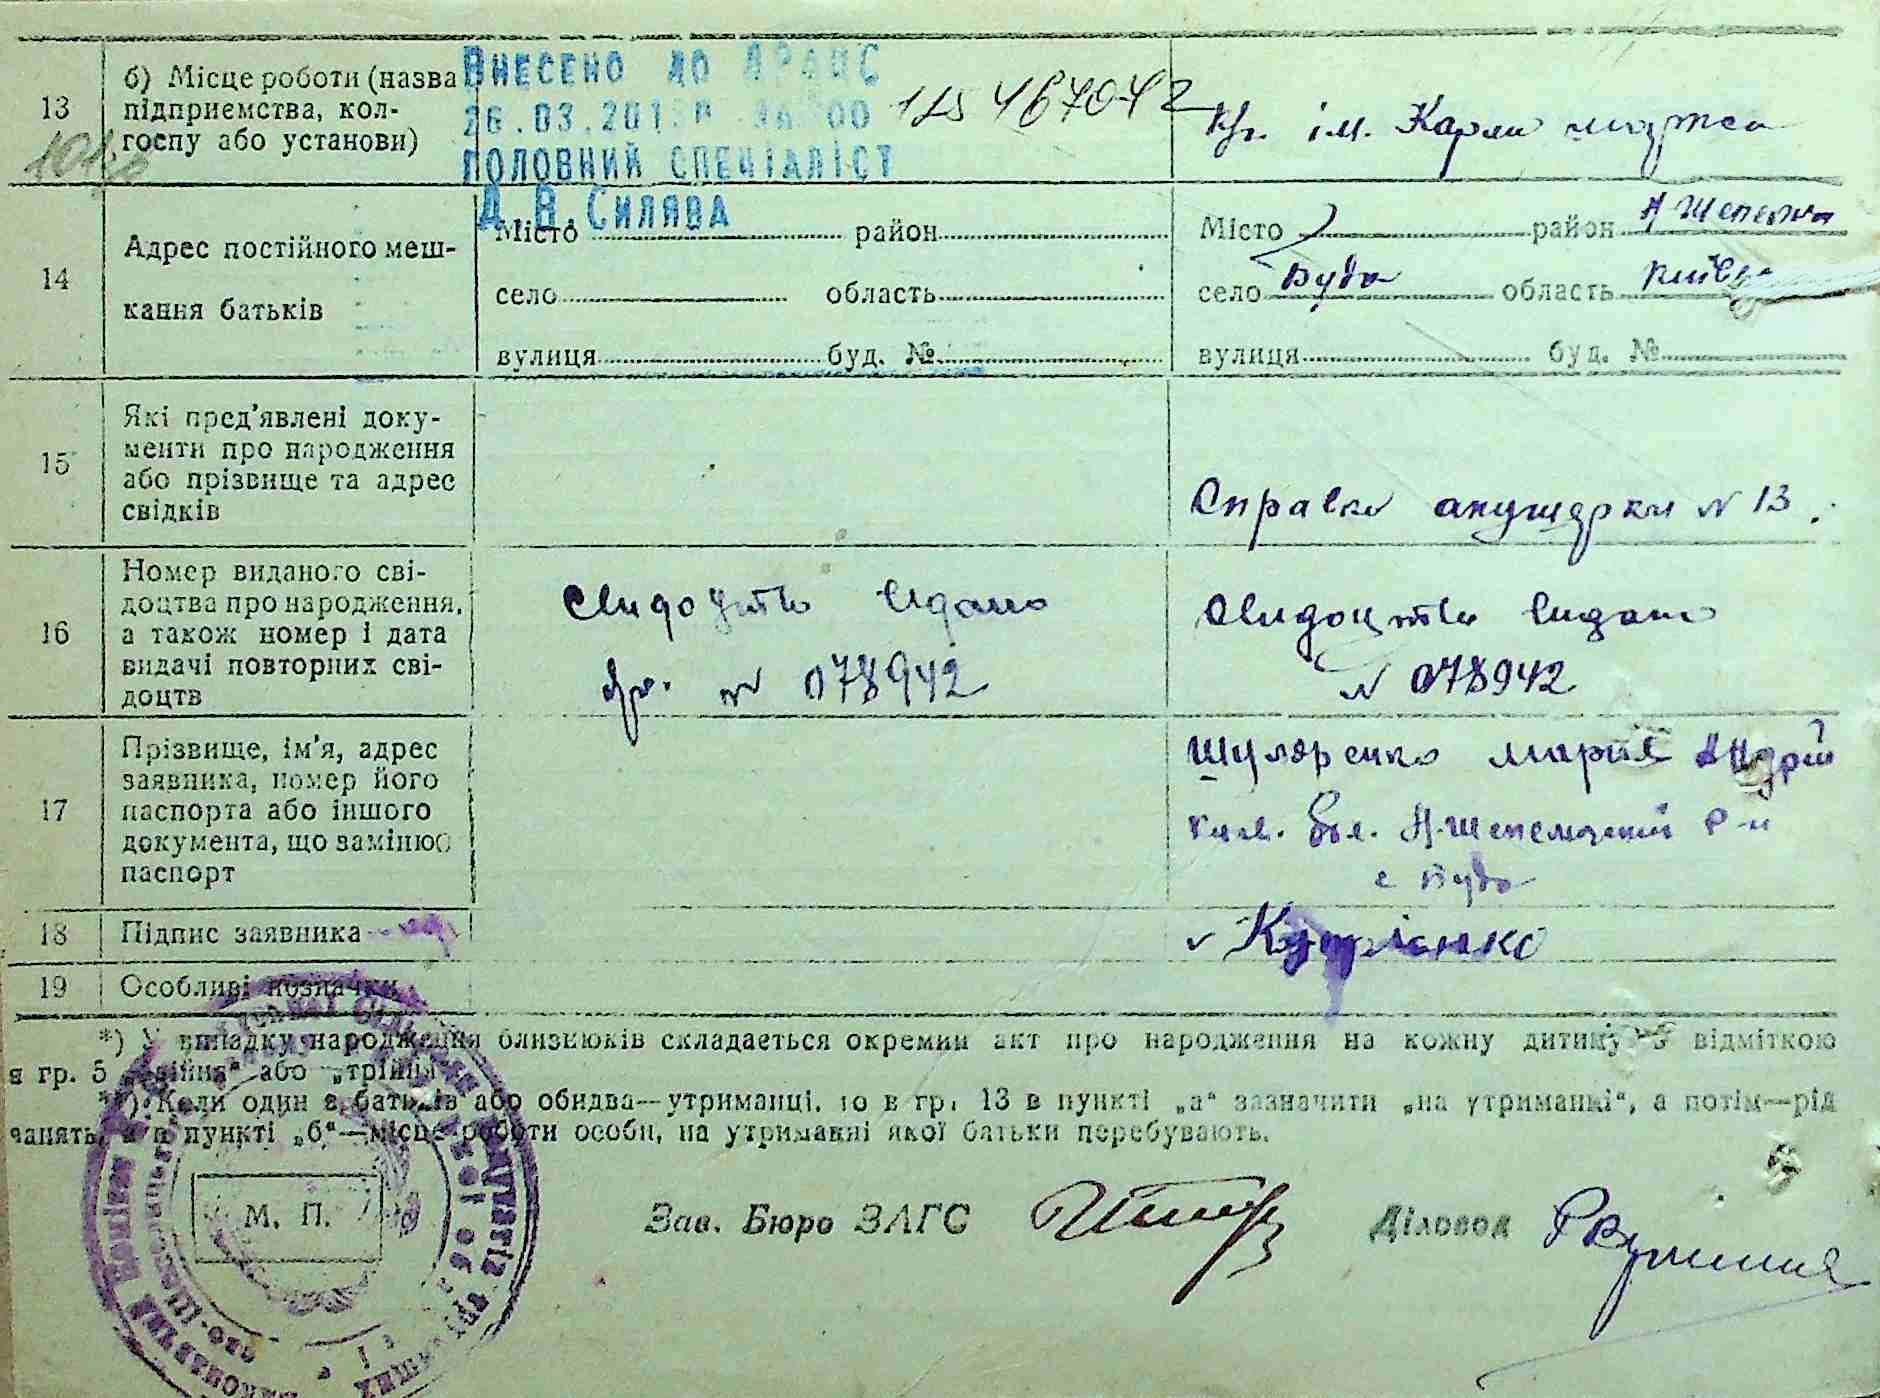 13
б) Місце роботи (назва
підприємства, кол-
госпу або установи)
Внесено до ДРАЦС
ГОЛОВНИЙ СПЕЦІАЛІСТ
Д.В.Силява
ім. Карла Маркса
14
Адрес постійного меш-
кання батьків
Місто район
село область
вулиця буд. №
Місто район
село Буда область
вулиця буд. №
15
Які пред'явлені доку-
менти про народження
або прізвище та адрес
свідків
Справка акушерки № 13.
16
Номер виданого сві-
доцтва про народження,
а також номер і дата
видачі повторних сві-
доцтв
Свидоцтво видано
№ 078942
Свидоцтво видано
№ 078942
17
Прізвище, ім'я, адрес
заявника, номер його
паспорта або іншого
документа, що замінює
паспорт
Мария Андрій
обл. р-н
с Буда
18 Підпис заявника
19 Особливі позначки
*) У випадку народження близнюків складається окремий акт про народження на кожну дитину з відміткою
в гр. 5 „двійня“ або „трійня“
**) Коли один з батьків або обидва—утриманці, то в гр. 13 в пункті „а“ зазначити „на утриманні“, а потім—рід
занять, а в пункті „б“—місце роботи особи, на утриманні якої батьки перебувають.
М. П.
Зав. Бюро ЗАГС Діловод